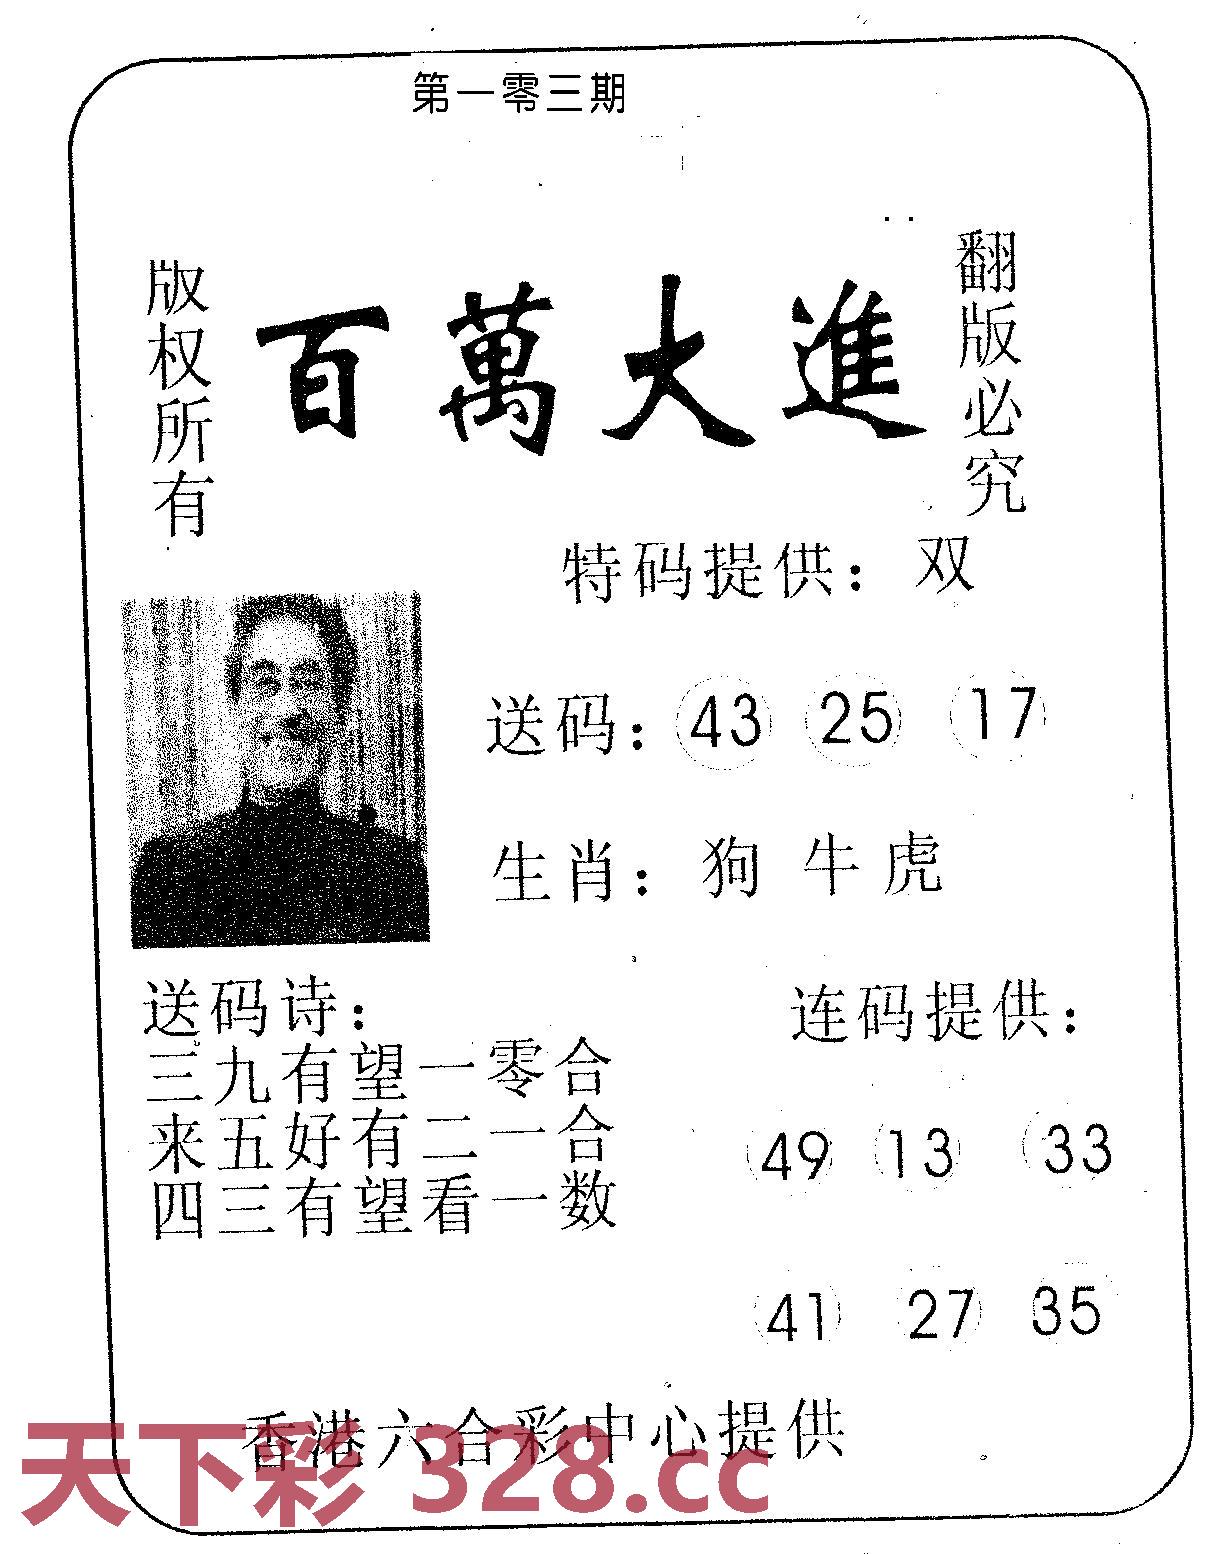 第一零三期
版权所有
百萬大進
翻版必究
特码提供：双
送码：43 25 17
生肖：狗 牛 虎
送码诗：
三九有望一零合
来五好有二一合
四三有望看一数
连码提供：
49 13 33
41 27 35
香港六合彩中心提供
天下彩 328.cc